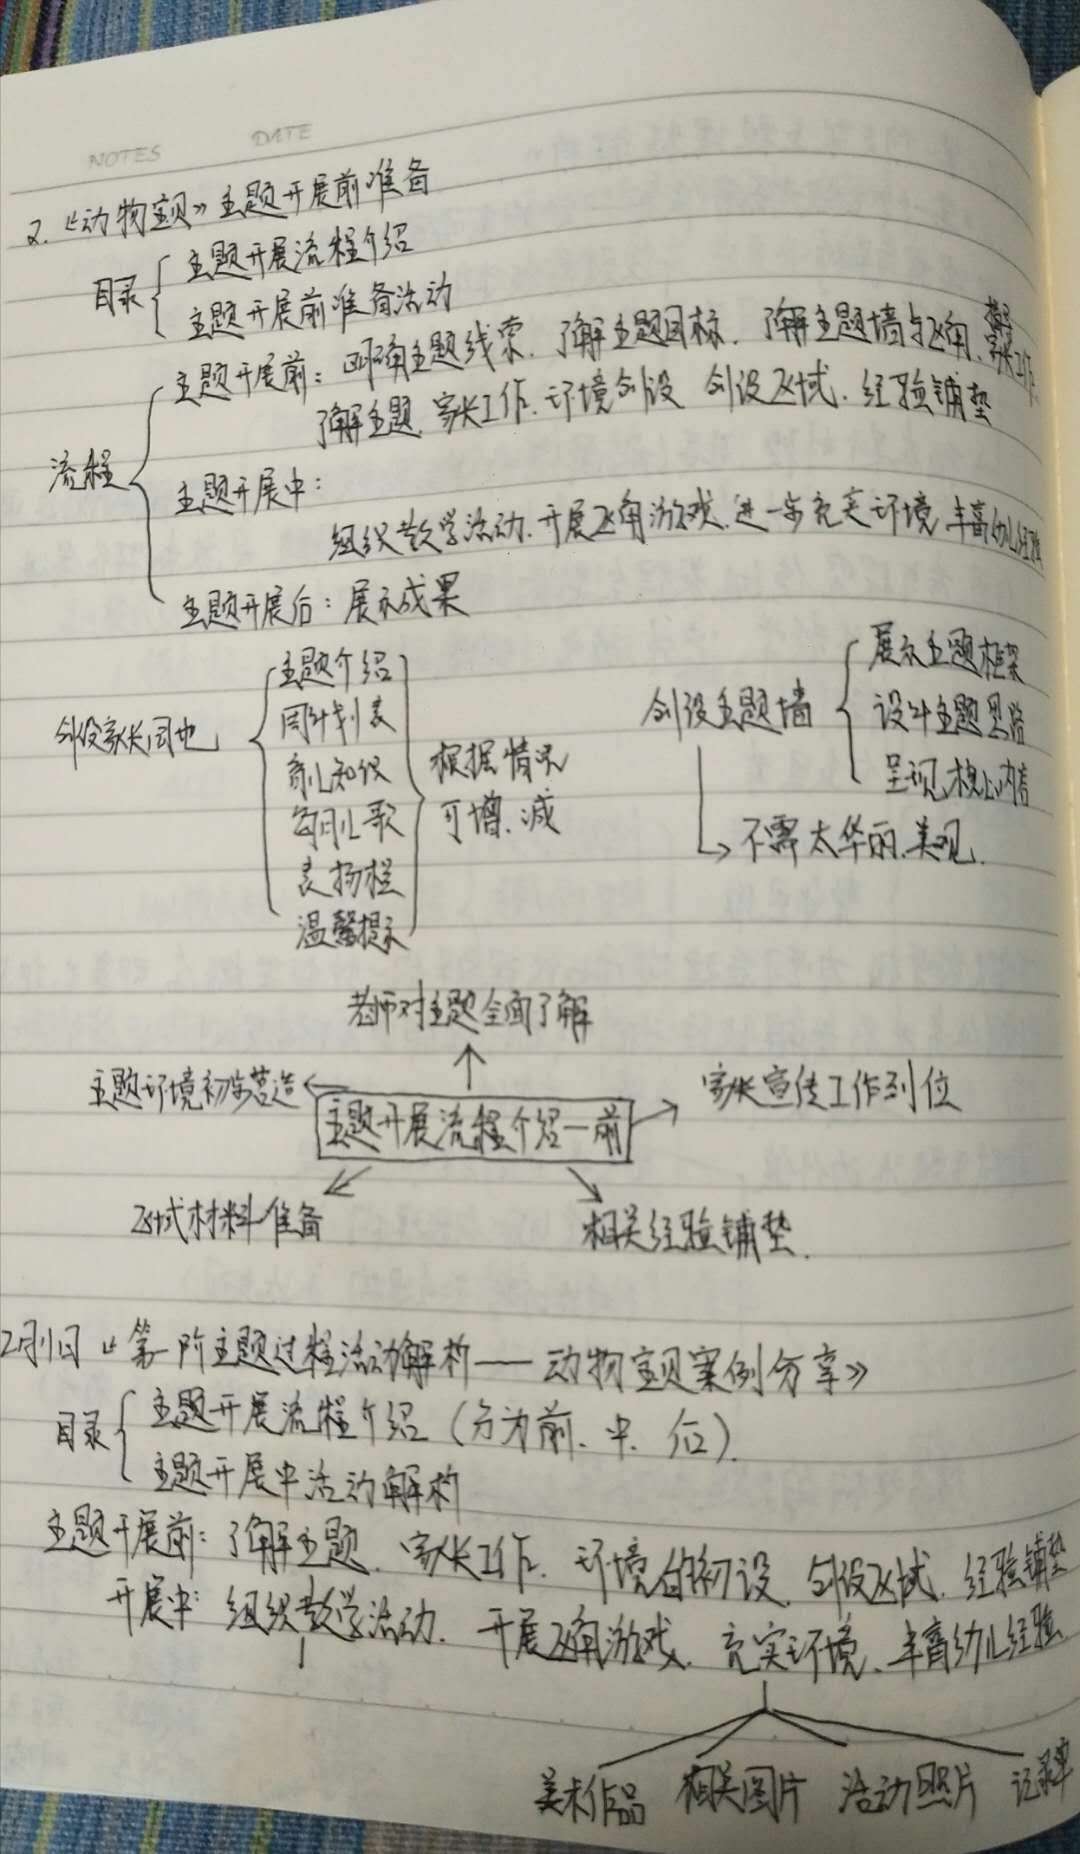 NOTES DATE
2.《动物宝贝》主题开展前准备
目录
主题开展流程介绍
主题开展前准备活动
流程
主题开展前：明确主题线索、了解主题目标、了解主题墙与区角、家长工作
了解主题、家长工作、环境创设 创设区域、经验铺垫
主题开展中：
组织教学活动、开展区角游戏、进一步充实环境 丰富幼儿经验
主题开展后：展示成果
创设家长园地
主题介绍
周计划表
育儿知识
每月儿歌
表扬栏
温馨提示
根据情况
可增、减
创设主题墙
展示主题框架
设计主题思路
呈现核心内容
不需太华丽、美观
老师对主题全面了解
主题环境初步营造
主题开展流程介绍—前
家长宣传工作到位
区域材料准备
相关经验铺垫
《第一阶主题过程活动解析——动物宝贝案例分享》
目录
主题开展流程介绍（分为前、中、后）
主题开展中活动解析
主题开展前：了解主题、家长工作、环境的初设、创设区域、经验铺垫
开展中：组织教学活动、开展区角游戏、充实环境、丰富幼儿经验
美术作品 相关图片 活动照片 记录单